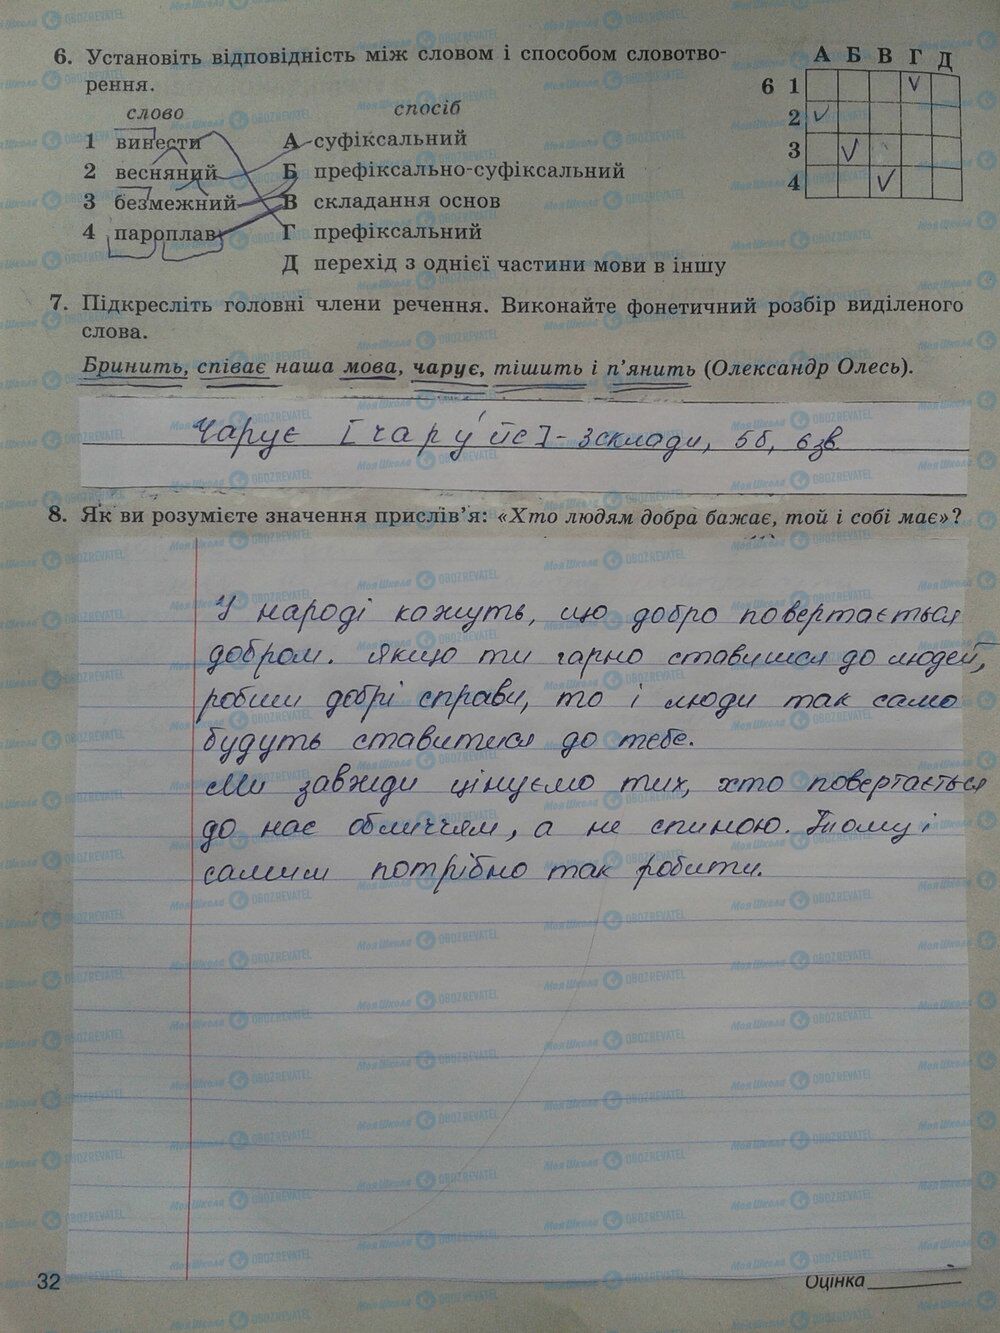 6. Установіть відповідність між словом і способом словотво-
рення.
слово
спосіб
1 винести
А суфіксальний
2 весняний
Б префіксально-суфіксальний
3 безмежний
В складання основ
4 пароплав
Г префіксальний
Д перехід з однієї частини мови в іншу
А Б В Г Д
6 1
2
3
4
7. Підкресліть головні члени речення. Виконайте фонетичний розбір виділеного
слова.
Бринить, співає наша мова, чарує, тішить і п'янить (Олександр Олесь).
Чарує [чару́йе] - 3 склади, 5б, 6 зв.
8. Як ви розумієте значення прислів'я: «Хто людям добра бажає, той і собі має»?
У народі кажуть, що добро повертається
добром. Якщо ти гарно ставишся до людей,
робиш добрі справи, то і люди так само
будуть ставитися до тебе.
Ми завжди цінуємо тих, хто повертається
до нас обличчям, а не спиною. Тому і
самим потрібно так робити.
32
Оцінка
Моя Школа OBOZREVATEL